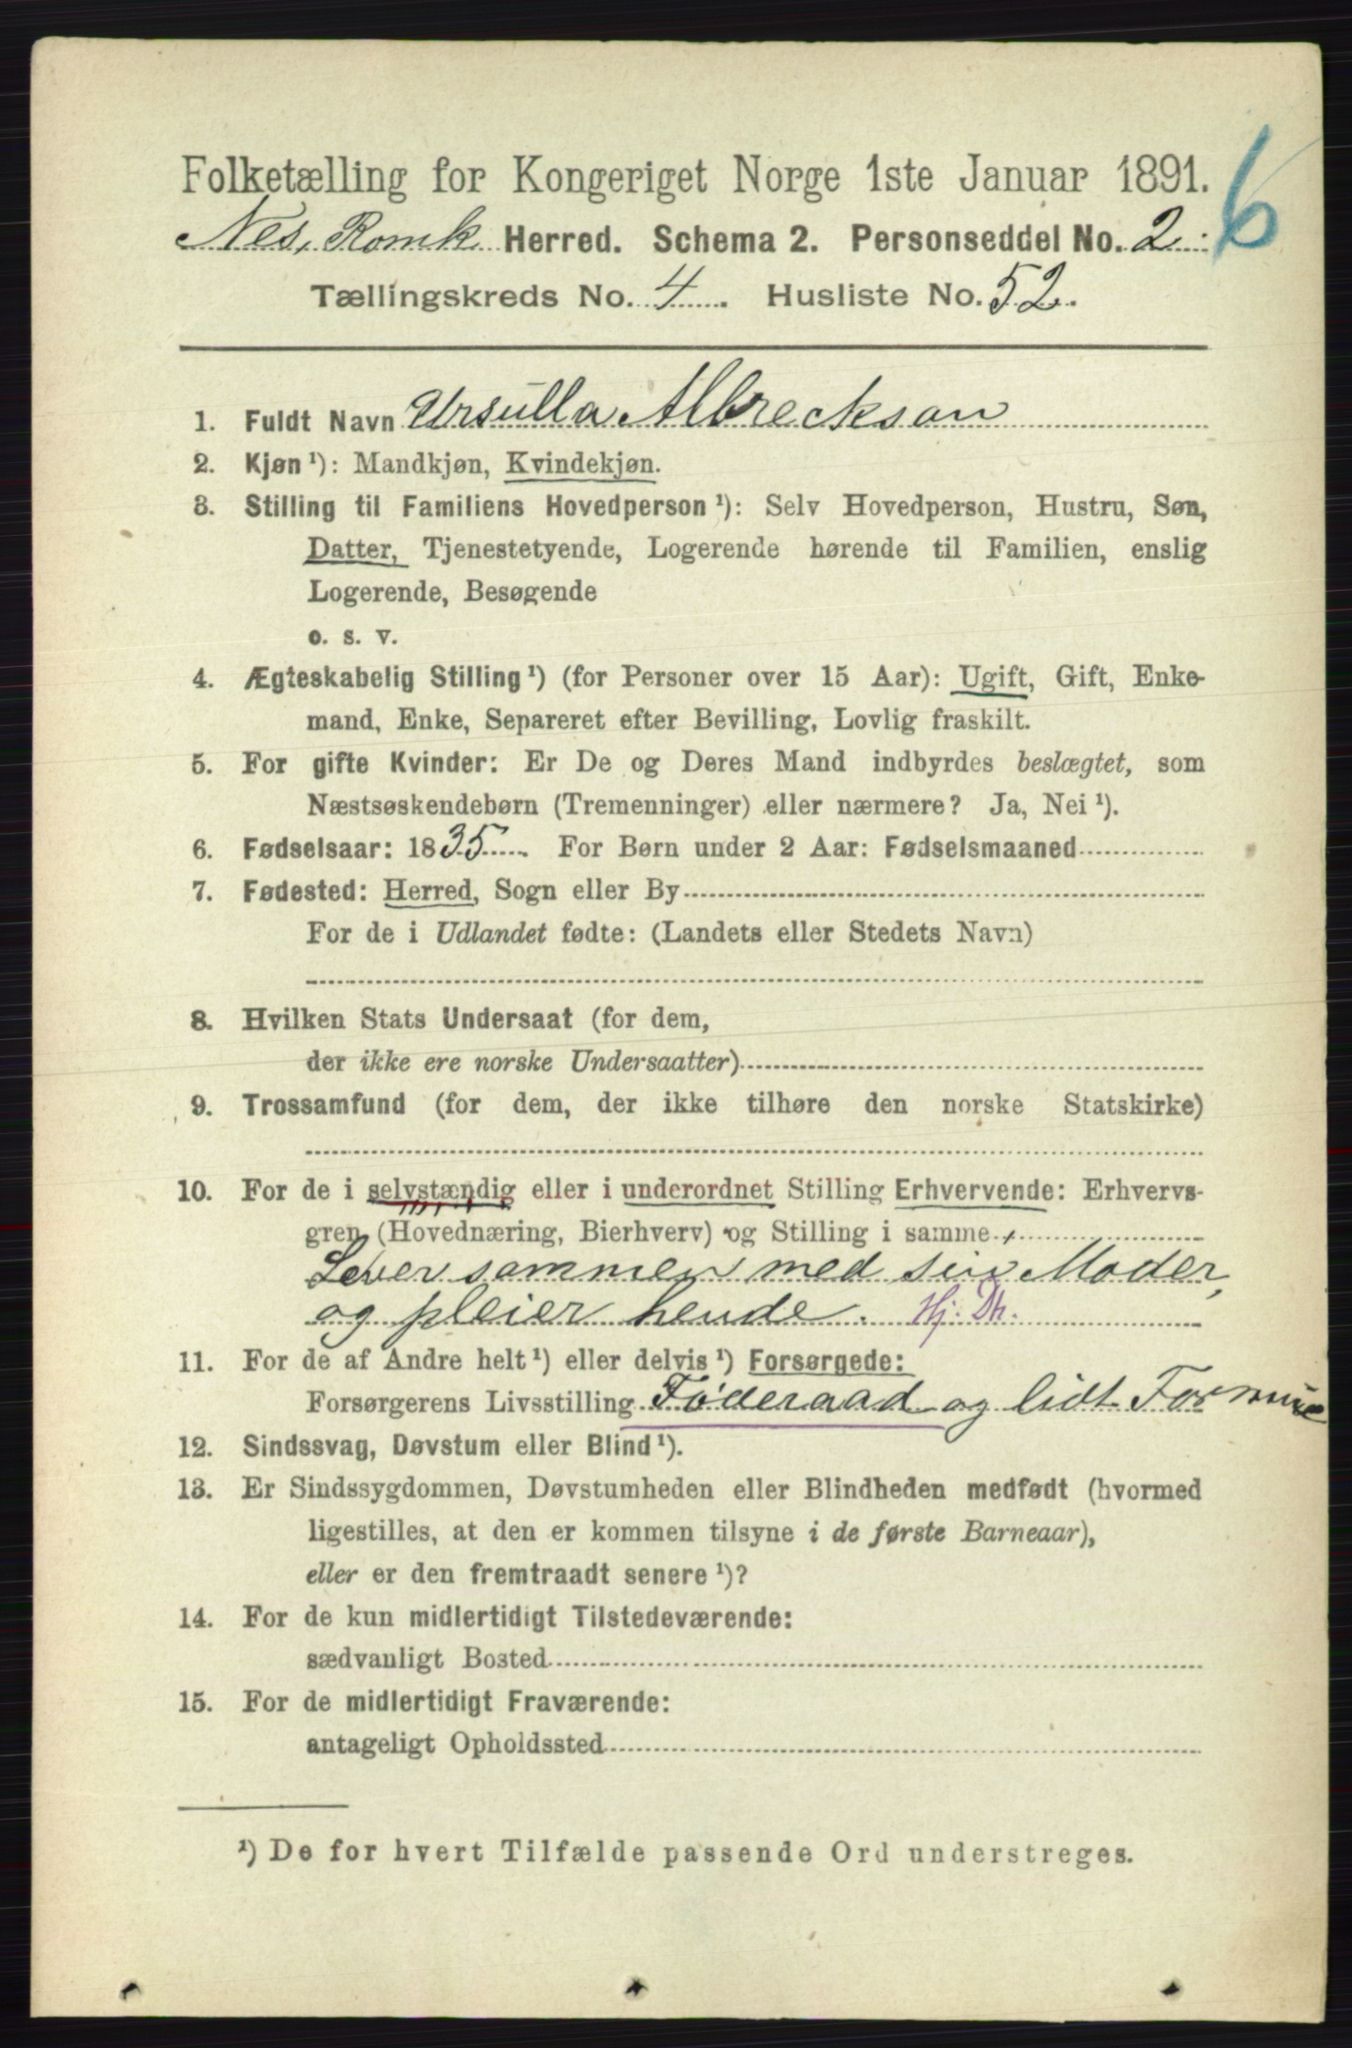 Folketælling for Kongeriget Norge 1ste Januar 1891. 6
Nes, Romk Herred. Schema 2. Personseddel No. 2
Tællingskreds No. 4. Husliste No. 52.
1. Fuldt Navn Ursulla Albreckson
2. Kjøn ¹): Mandkjøn, Kvindekjøn.
3. Stilling til Familiens Hovedperson ¹): Selv Hovedperson, Hustru, Søn,
Datter, Tjenestetyende, Logerende hørende til Familien, enslig
Logerende, Besøgende
o. s. v.
4. Ægteskabelig Stilling ¹) (for Personer over 15 Aar): Ugift, Gift, Enke-
mand, Enke, Separeret efter Bevilling, Lovlig fraskilt.
5. For gifte Kvinder: Er De og Deres Mand indbyrdes beslægtet, som
Næstsøskendebørn (Tremenninger) eller nærmere? Ja, Nei ¹).
6. Fødselsaar: 1835. For Børn under 2 Aar: Fødselsmaaned
7. Fødested: Herred, Sogn eller By
For de i Udlandet fødte: (Landets eller Stedets Navn)
8. Hvilken Stats Undersaat (for dem,
der ikke ere norske Undersaatter)
9. Trossamfund (for dem, der ikke tilhøre den norske Statskirke)
10. For de i selvstændig eller i underordnet Stilling Erhvervende: Erhvervs-
gren (Hovednæring, Bierhverv) og Stilling i samme
Lever sammen med sin Moder,
og pleier hende. Hj. Dt.
11. For de af Andre helt ¹) eller delvis ¹) Forsørgede:
Forsørgerens Livsstilling Føderaad og lidt Formue
12. Sindssvag, Døvstum eller Blind ¹).
13. Er Sindssygdommen, Døvstumheden eller Blindheden medfødt (hvormed
ligestilles, at den er kommen tilsyne i de første Barneaar),
eller er den fremtraadt senere ¹)?
14. For de kun midlertidigt Tilstedeværende:
sædvanligt Bosted
15. For de midlertidigt Fraværende:
antageligt Opholdssted
¹) De for hvert Tilfælde passende Ord understreges.